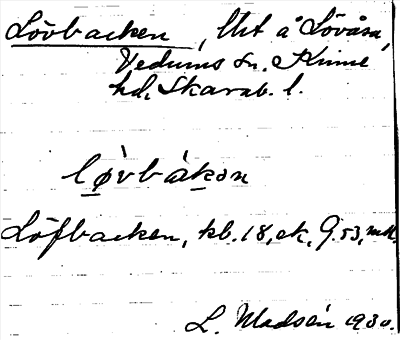 Lövbacken, lht å Lövåsa,
Vedums sn. Kinne
hd, Skarab. l.
løvbàkɘn
Löfbacken, kb. 18, ek. 9.53, mtl.
L. Madsén 1930.